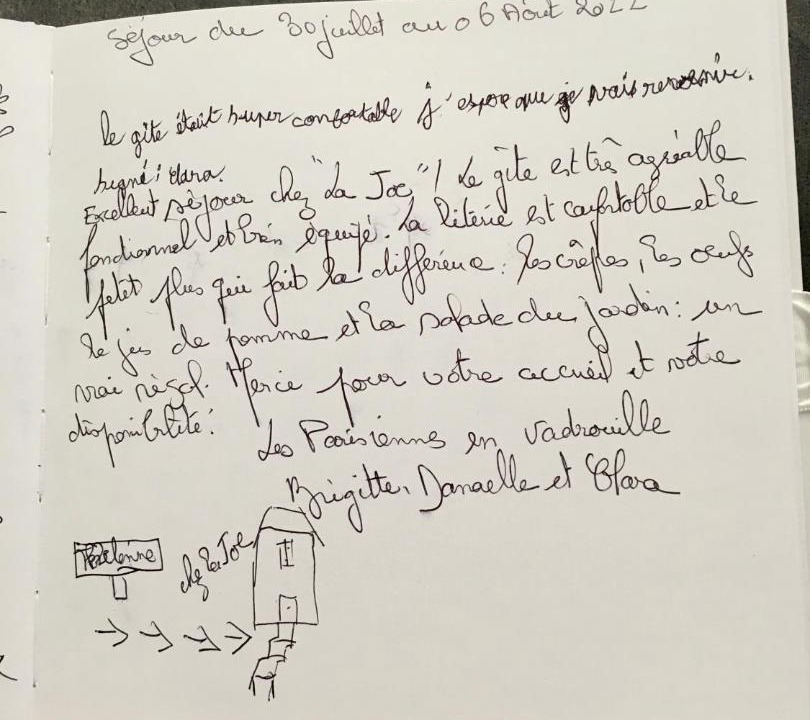 Séjour du 30 juillet au 06 Août 2022
le gîte était super confortable j'espoe que je vais revenire.
signé : clara.
Excellent séjour chez "La Joe" ! Le gîte est très agréable
fonctionnel et bien équipé. La literie est confortable et le
petit plus qui fait la différence : les crêpes, les oeufs
le jus de pomme et la salade du jardin : un
vrai régal. Merci pour votre accueil et votre
disponibilité !
Les Parisiennes en vadrouille
Brigitte, Danaelle et Clara
chez la Joe